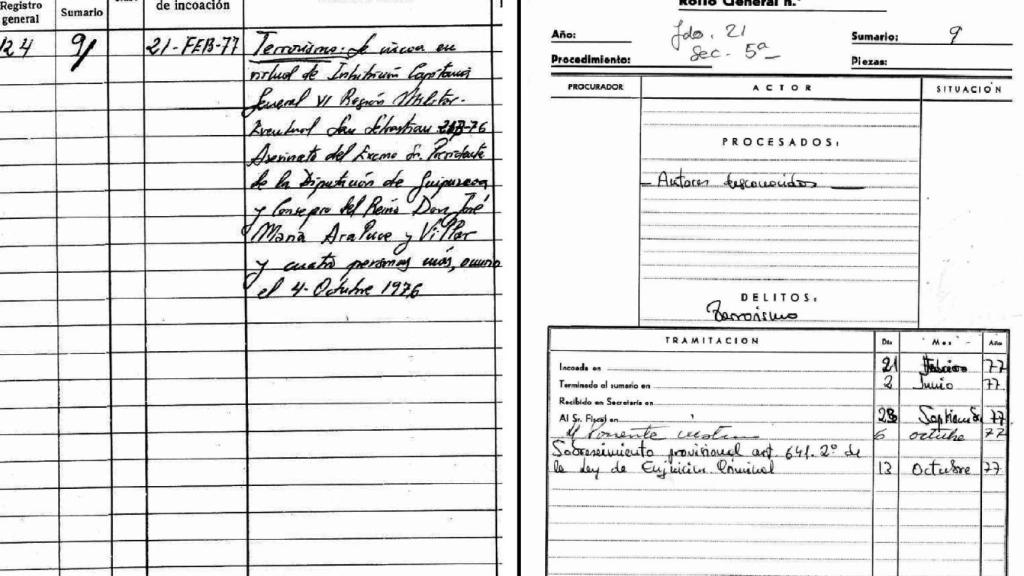 Registro
general
Sumario
de incoación
124
9/
21-FEB-77
Terrorismo. Se incoa en
virtud de Inhibición Capitanía
General VI Región Militar.
San Sebastian
Asesinato del Excmo Sr. Presidente
de la Diputación de Guipuzcoa
y Consejero del Reino Don José
Maria Araluce y Villar
y cuatro personas más,
el 4-Octubre 1976
Rollo General n.º
Año:
Jdo. 21
Sec. 5ª
Sumario: 9
Procedimiento:
Piezas:
PROCURADOR
ACTOR
SITUACIÓN
PROCESADOS:
- Autores desconocidos -
DELITOS:
Terrorismo
TRAMITACION
Día
Mes
Año
Incoada en 21 Febrero 77
Terminado el sumario en 2 Junio 77
Recibido en Secretaría en
Al Sr. Fiscal en 23 Septiembre 77
Ponente 6 octubre 77
Sobreseimiento provisional art. 641. 2º de
la Ley de Enjuiciam. Criminal 13 Octubre 77